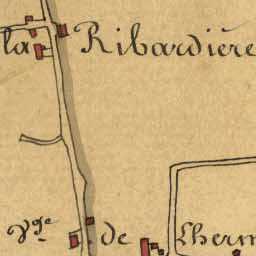 la Ribardière
Vge de Lherm